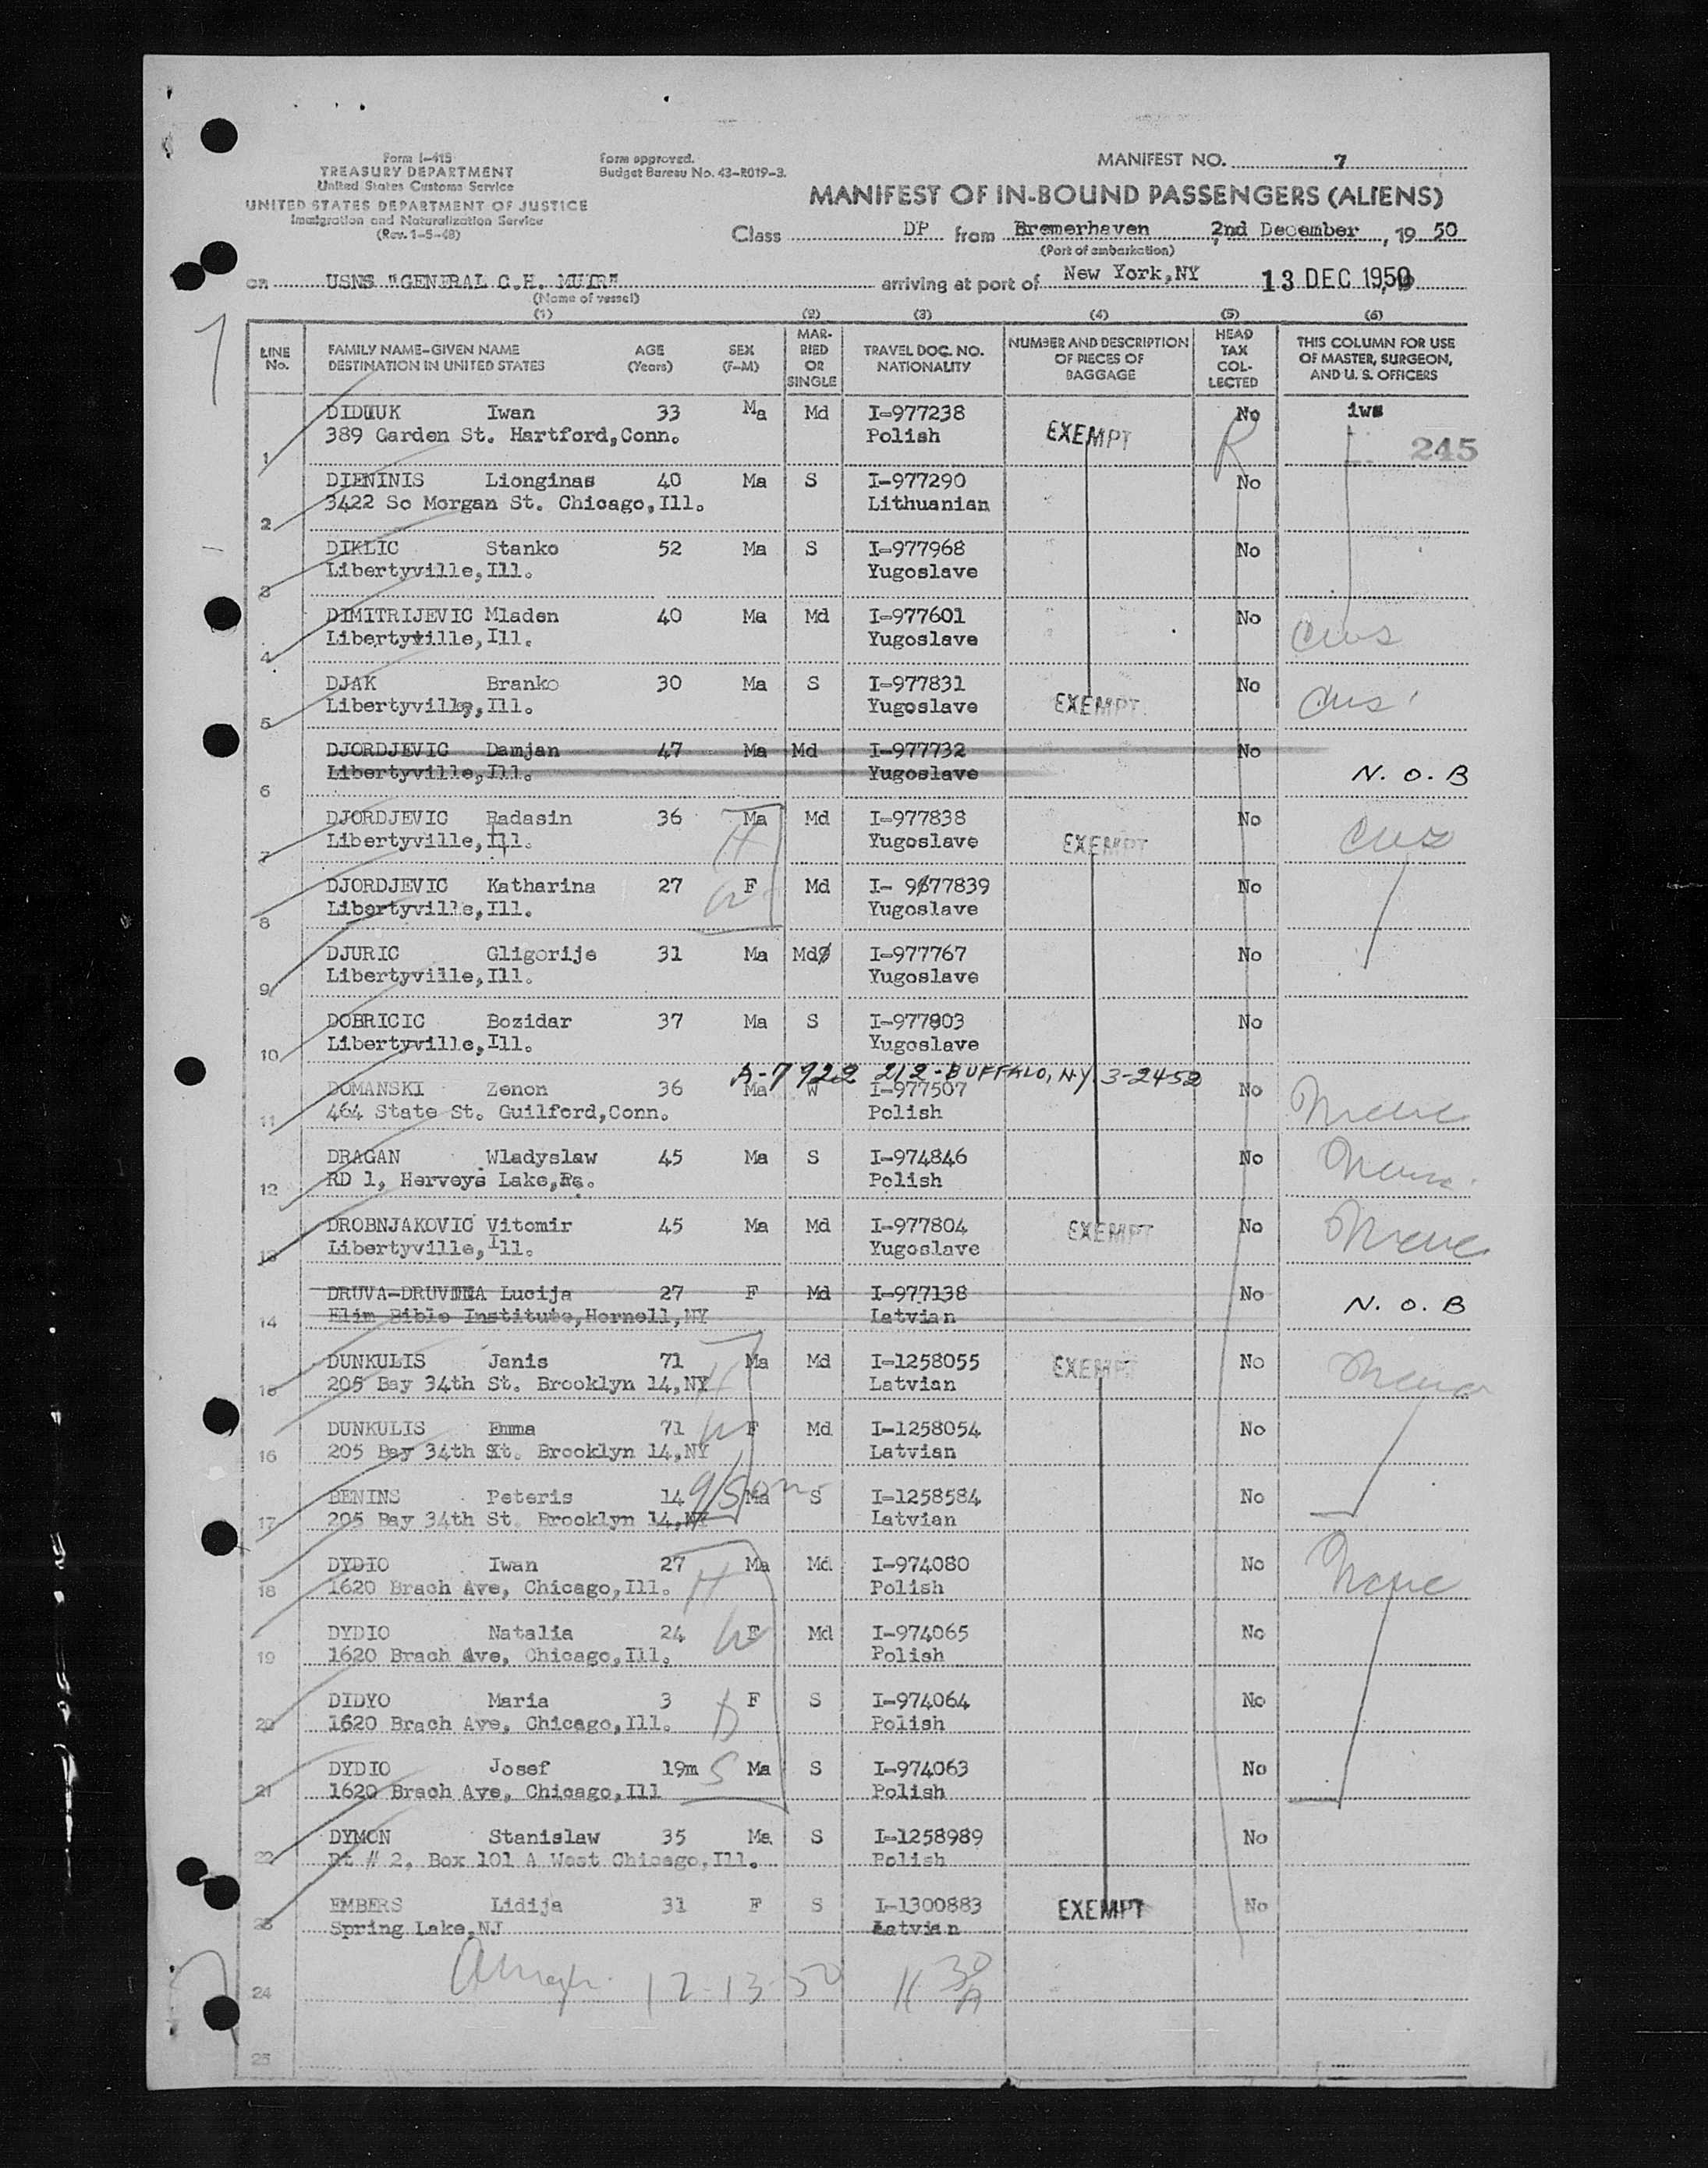 Form I-415
TREASURY DEPARTMENT
United States Customs Service
UNITED STATES DEPARTMENT OF JUSTICE
Immigration and Naturalization Service
(Rev. 1-5-48)
Form approved.
Budget Bureau No. 43-R019-3.
MANIFEST NO. 7
MANIFEST OF IN-BOUND PASSENGERS (ALIENS)
Class DP from Bremerhaven 2nd December, 19 50
(Port of embarkation)
on USNS "GENERAL C.H. MUIR" arriving at port of New York,NY 13 DEC 1950
(Name of vessel)
(1) (2) (3) (4) (5) (6)
LINE No. FAMILY NAME-GIVEN NAME DESTINATION IN UNITED STATES AGE (Years) SEX (F-M) MARRIED OR SINGLE TRAVEL DOC. NO. NATIONALITY NUMBER AND DESCRIPTION OF PIECES OF BAGGAGE HEAD TAX COLLECTED THIS COLUMN FOR USE OF MASTER, SURGEON, AND U. S. OFFICERS
DIDUUK Iwan 33 Ma Md I-977238 No iws
389 Garden St. Hartford,Conn. Polish EXEMPT R 245
1
DIENINIS Lionginas 40 Ma S I-977290 No
3422 So Morgan St. Chicago,Ill. Lithuanian
2
DIKLIC Stanko 52 Ma S I-977968 No
Libertyville,Ill. Yugoslave
3
DIMITRIJEVIC Mladen 40 Ma Md I-977601 No
Libertyville,Ill. Yugoslave cws
4
DJAK Branko 30 Ma S I-977831 No
Libertyville,Ill. Yugoslave EXEMPT cws
5
DJORDJEVIC Damjan 47 Ma Md I-977732 No
Libertyville,Ill. Yugoslave N. O. B
6
DJORDJEVIC Radasin 36 Ma Md I-977838 No
Libertyville,Ill. H Yugoslave EXEMPT cws
7
DJORDJEVIC Katharina 27 F Md I- 9677839 No
Libertyville,Ill. W Yugoslave
8
DJURIC Gligorije 31 Ma Md I-977767 No
Libertyville,Ill. Yugoslave
9
DOBRICIC Bozidar 37 Ma S I-977803 No
Libertyville,Ill. Yugoslave
10
A-7922 212-BUFFALO, N.Y. 3-2452
DOMANSKI Zenon 36 Ma W I-977507 No
464 State St. Guilford,Conn. Polish
11
DRAGAN Wladyslaw 45 Ma S I-974846 No
RD 1, Herveys Lake,Pa. Polish
12
DROBNJAKOVIC Vitomir 45 Ma Md I-977804 EXEMPT No
Libertyville,Ill. Yugoslave
13
DRUVA-DRUVINA Lucija 27 F Md I-977138 No
Elim Bible Institute,Hornell,NY Latvian N. O. B
14
DUNKULIS Janis 71 Ma Md I-1258055 EXEMPT No
205 Bay 34th St. Brooklyn 14,NY H Latvian
15
DUNKULIS Emma 71 F Md I-1258054 No
205 Bay 34th St. Brooklyn 14,NY W Latvian
16
BENINS Peteris 14 g/son Ma S I-1258584 No
205 Bay 34th St. Brooklyn 14,NY Latvian
17
DYDIO Iwan 27 Ma Md I-974080 No
1620 Brach Ave, Chicago,Ill. H Polish
18
DYDIO Natalia 24 W F Md I-974065 No
1620 Brach Ave, Chicago,Ill. Polish
19
DIDYO Maria 3 F S I-974064 No
1620 Brach Ave, Chicago,Ill. D Polish
20
DYDIO Josef 19m S Ma S I-974063 No
1620 Brach Ave, Chicago,Ill Polish
21
DYMON Stanislaw 35 Ma S I-1258989 No
Rt # 2, Box 101 A West Chicago,Ill. Polish
22
EMBERS Lidija 31 F S I-1300883 EXEMPT No
Spring Lake,NJ Latvian
23
12-13-50 11 30 A
24
25